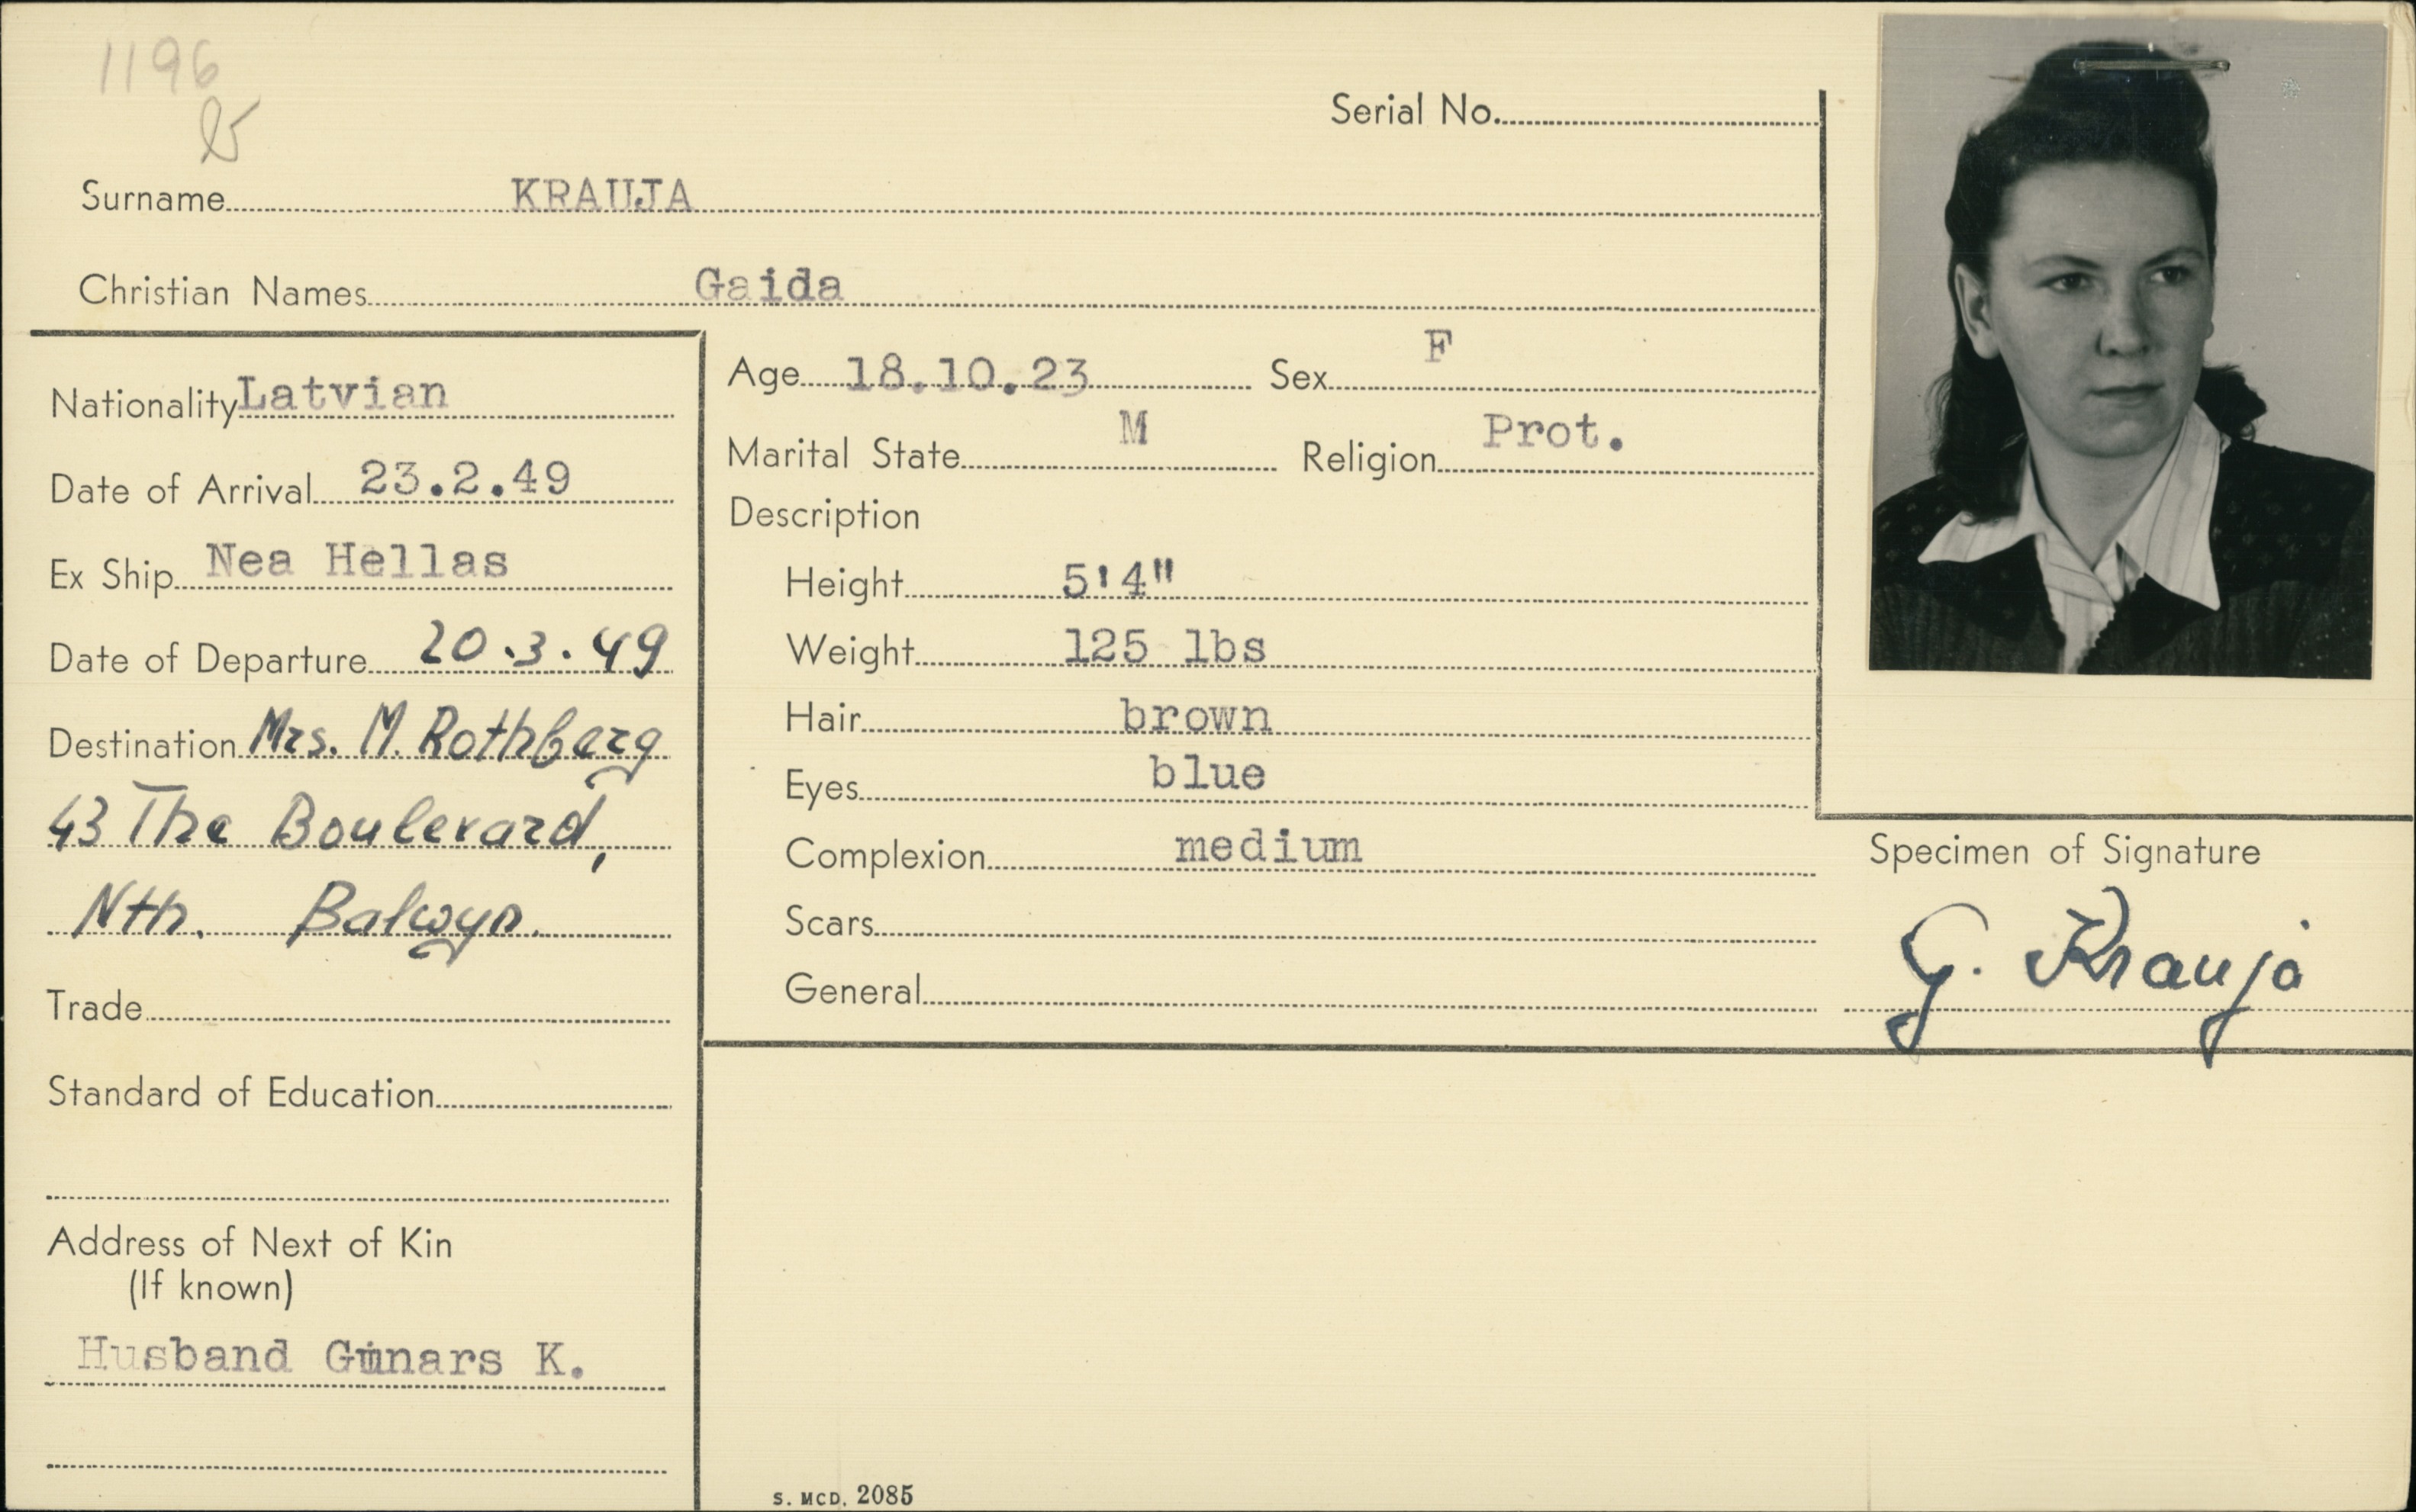 1196
Serial No.
Surname KRAUJA
Christian Names Gaida
Nationality Latvian
Date of Arrival 23.2.49
Ex Ship Nea Hellas
Date of Departure 20.3.49
Destination Mrs. M. Rothberg
43 The Boulevard,
Nth. Balwyn.
Trade
Standard of Education
Address of Next of Kin
(If known)
Husband Gunars K.
Age 18.10.23 Sex F
Marital State M Religion Prot.
Description
Height 5'4"
Weight 125 lbs
Hair brown
Eyes blue
Complexion medium
Scars
General
Specimen of Signature
G. Krauja
S. MCD. 2085